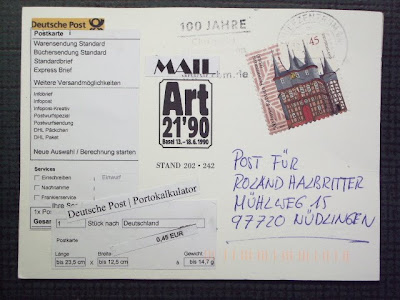 Deutsche Post
Postkarte
Warensendung Standard
Büchersendung Standard
Standardbrief
Express Brief
Weitere Versandmöglichkeiten
Infobrief
Infopost
Infopost-Kreativ
Postzustellungsauftrag
Postwurfsendung
DHL Päckchen
DHL Paket
Neue Auswahl / Berechnung starten
Services
Einschreiben
Einwurf
Nachnahme
1x Po
Gesa
Deutsche Post | Portokalkulator
1 Stück nach Deutschland
Postkarte
0,45 EUR
Länge Breite Gewicht
bis 23,5 cm x bis 12,5 cm bis 14,7 g
MAIL
Art
21'90
Basel 13. - 18.6.1990
STAND 202 · 242
100 JAHRE
45
POST FÜR
ROLAND HALBRITTER
MÜHLWEG 15
97720 NÜDLINGEN